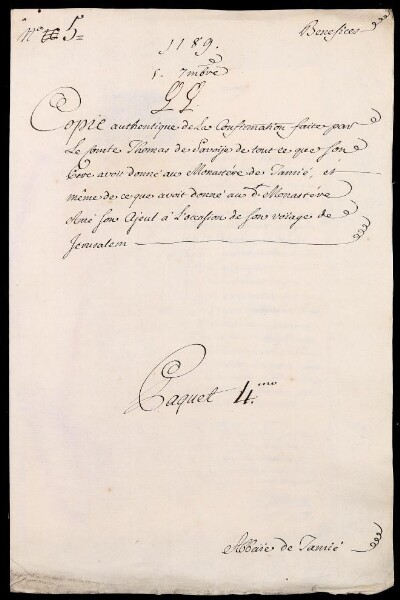 N.º 5=
Benefices
1189.
5. 7mbre
Copie authentique de la Confirmation faite par
Le Comte Thomas de Savoije de tout ce que son
Pere avoit donné au Monastère de Tamié, et
même de ce que avoit donné au d.t Monastére
Amé son Ajeul à L'occasion de son voijage de
Jerusalem
Paquet 4.mo
Abbaïe de Tamié